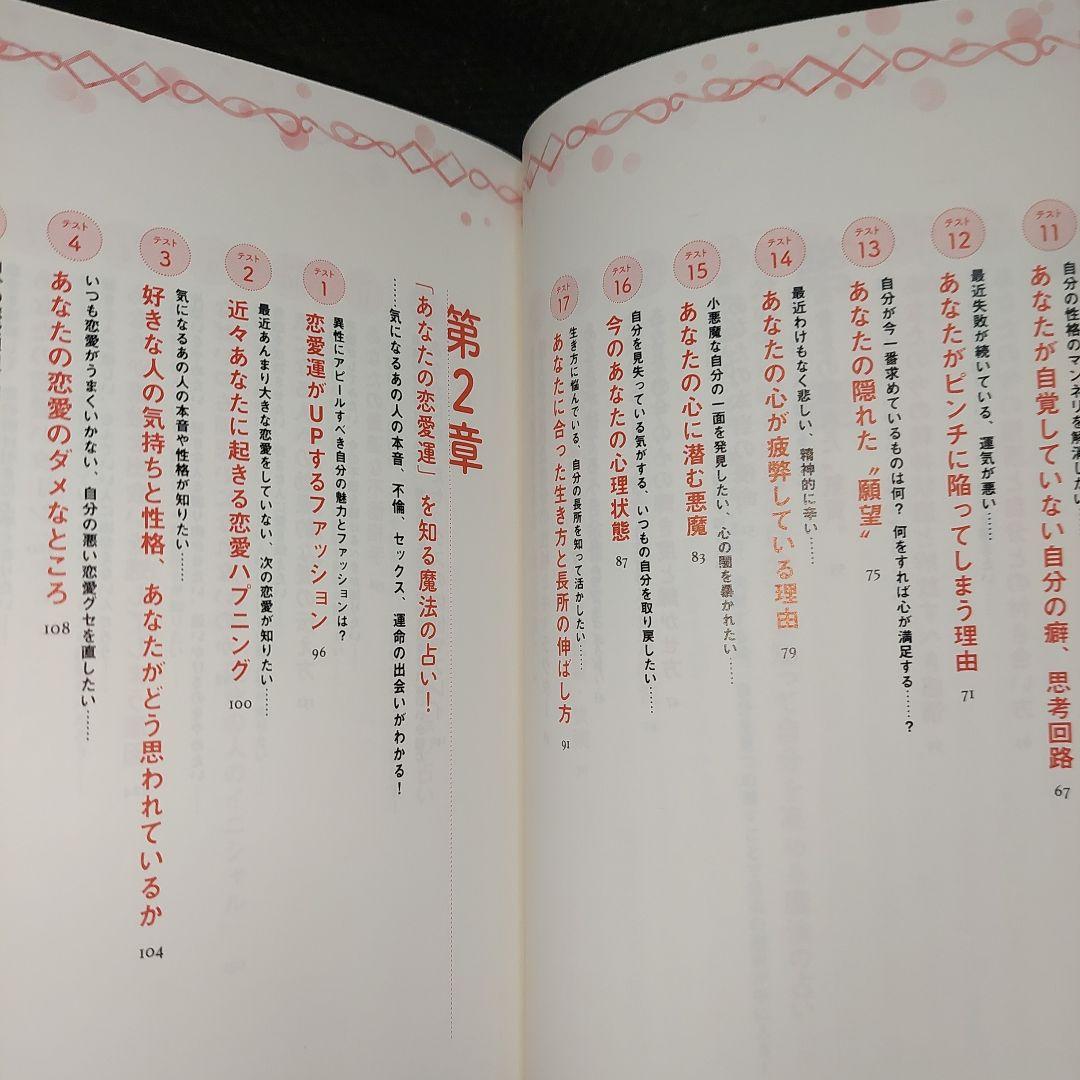 テスト
11
自分の性格のマンネリを解消したい
あなたが自覚していない自分の癖、思考回路
67
テスト
12
最近失敗が続いている、運気が悪い……
あなたがピンチに陥ってしまう理由
71
テスト
13
自分が今一番求めているものは何? 何をすれば心が満足する……?
あなたの隠れた〝願望〟
75
テスト
14
最近わけもなく悲しい、精神的に辛い……
あなたの心が疲弊している理由
79
テスト
15
小悪魔な自分の一面を発見したい、心の闇を暴かれたい……
あなたの心に潜む悪魔
83
テスト
16
自分を見失っている気がする、いつもの自分を取り戻したい……
今のあなたの心理状態
87
テスト
17
生き方に悩んでいる、自分の長所を知って活かしたい……
あなたに合った生き方と長所の伸ばし方
91
第2章
「あなたの恋愛運」を知る魔法の占い!
……気になるあの人の本音、不倫、セックス、運命の出会いがわかる!
テスト
1
異性にアピールすべき自分の魅力とファッションは?
恋愛運がUPするファッション
96
テスト
2
最近あんまり大きな恋愛をしていない、次の恋愛が知りたい……
近々あなたに起きる恋愛ハプニング
100
テスト
3
気になるあの人の本音や性格が知りたい……
好きな人の気持ちと性格、あなたがどう思われているか
104
テスト
4
いつも恋愛がうまくいかない、自分の悪い恋愛グセを直したい……
あなたの恋愛のダメなところ
108